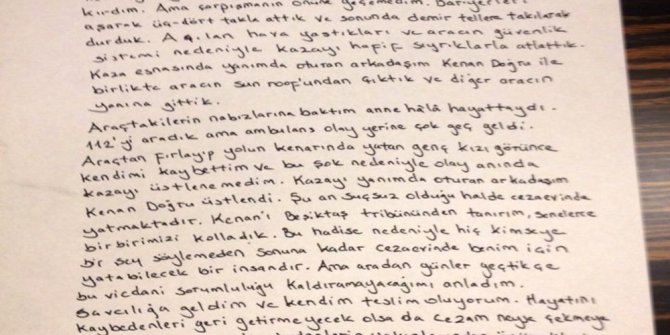 kırdım. Ama çarpışmanın önüne geçemedim. Bariyerleri
aşarak üç-dört takla attık ve sonunda demir tellere takılarak
durduk. Açılan hava yastıkları ve aracın güvenlik
sistemi nedeniyle kazayı hafif sıyrıklarla atlattık.
Kaza esnasında yanımda oturan arkadaşım Kenan Doğru ile
birlikte aracın sun roof'undan çıktık ve diğer aracın
yanına gittik.
Araçtakilerin nabızlarına baktım anne hâlâ hayattaydı.
112'yi aradık ama ambulans olay yerine çok geç geldi.
Araçtan fırlayıp yolun kenarında yatan genç kızı görünce
kendimi kaybettim ve bu şok nedeniyle olay anında
kazayı üstlenemedim. Kazayı yanımda oturan arkadaşım
Kenan Doğru üstlendi. Şu an suçsuz olduğu halde cezaevinde
yatmaktadır. Kenan'ı Beşiktaş tribününden tanırım, senelerce
birbirimizi kolladık. Bu hadise nedeniyle hiç kimseye
bir şey söylemeden sonuna kadar cezaevinde benim için
yatabilecek bir insandır. Ama aradan günler geçtikçe
bu vicdani sorumluluğu kaldıramayacağımı anladım.
Savcılığa geldim ve kendim teslim oluyorum. Hayatını
kaybedenleri geri getirmeyecek olsa da cezam neyse çekmeye